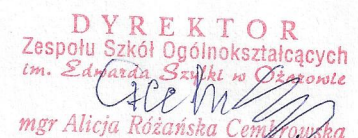 DYREKTOR
Zespołu Szkół Ogólnokształcących
im. Edwarda Szylki w Ożarowie
mgr Alicja Różańska Cembrowska